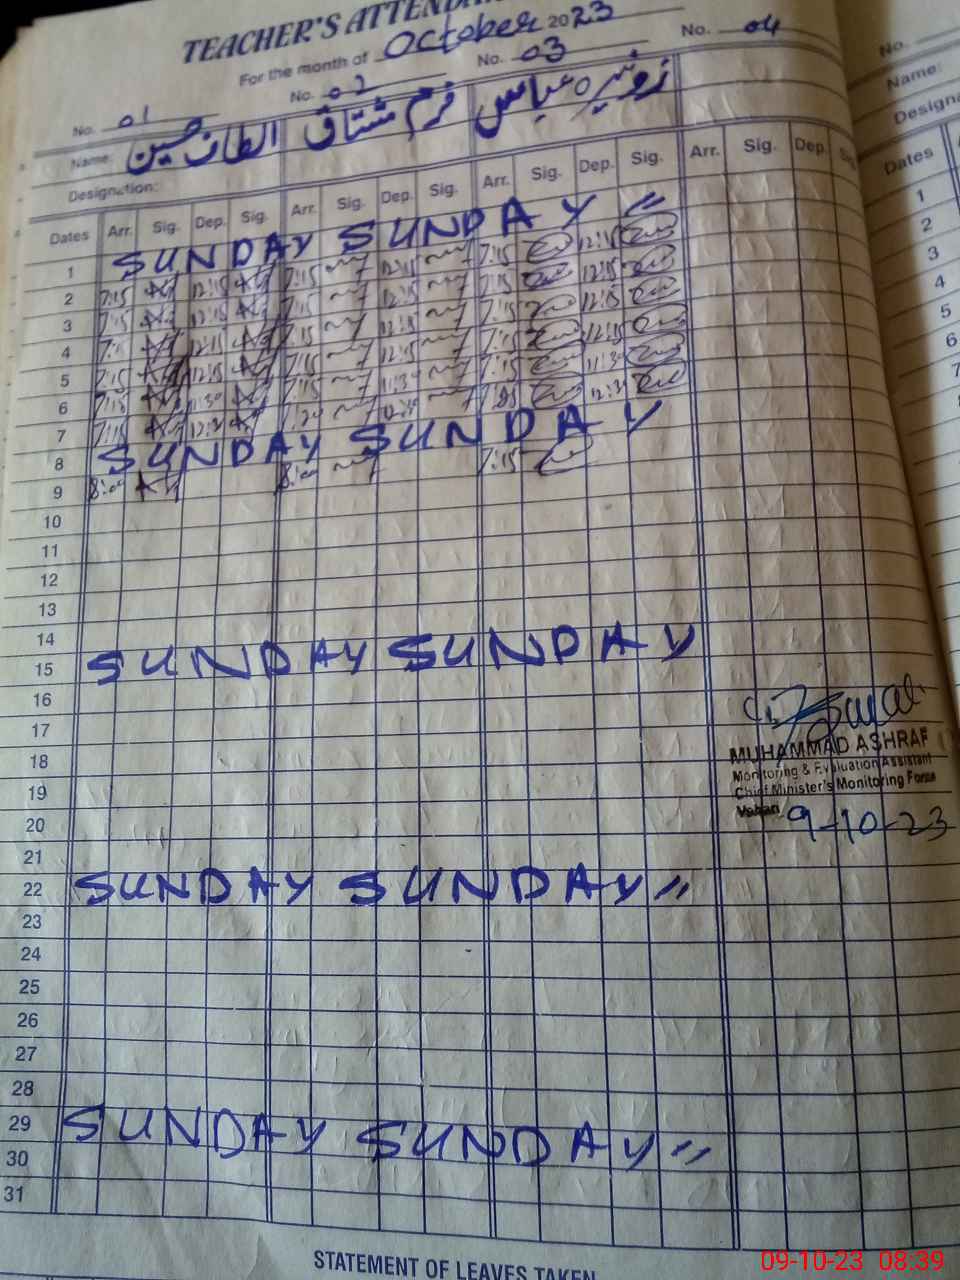 TEACHER'S
For the month of October 2023
No. 01 No. 02 No. 03 No. 04 No.
Name: الطاف حسین مشتاق زونیرہ عباس Name:
Designation:
Dates Arr. Sig. Dep. Sig. Arr. Sig. Dep. Sig. Arr. Sig. Dep. Sig. Arr. Sig. Dep. Dates
1 SUNDAY SUNDAY 〃 1
2 7:15 12:15 7:15 12:15 7:15 12:15 2
3 7:15 12:15 7:15 12:15 7:15 12:15 3
4 12:15 7:15 12:15 7:15 12:15 4
5 7:15 12:15 7:15 12:15 7:15 12:15 5
6 7:15 11:30 7:15 11:30 7:15 11:30 6
7 7:15 12:30 7
8 SUNDAY SUNDAY
9 8:00 8:00 7:15
10
11
12
13
14
15 SUNDAY SUNDAY
16
17
18
19
20
21
22 SUNDAY SUNDAY 〃
23
24
25
26
27
28
29 SUNDAY SUNDAY 〃
30
31
MUHAMMAD ASHRAF
Monitoring & Evaluation Assistant
Chief Minister's Monitoring Force
Vehari
9-10-23
STATEMENT OF LEAVES TAKEN
09-10-23 08:39